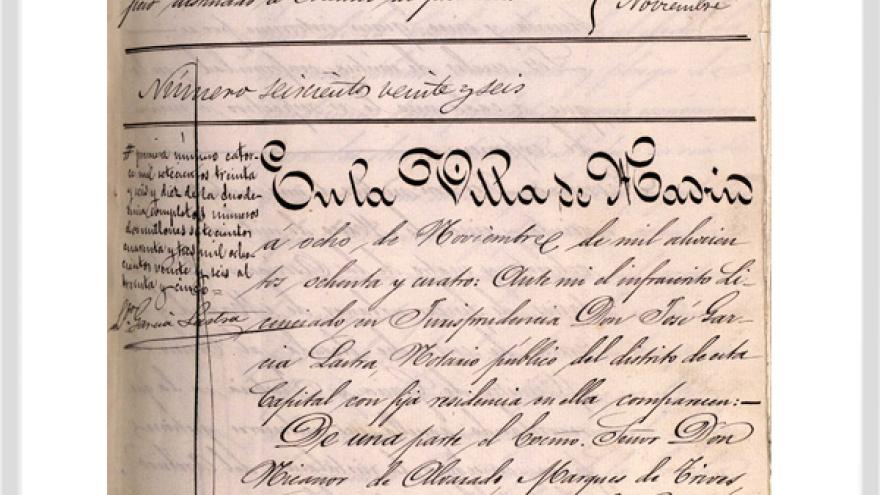 Noviembre
Número seiscientos veinte y seis
# primera número cator-
ce mil setecientos treinta
y seis y diez de la duode-
cima, completos, números
dos millones setecientos
cuarenta y tres mil ocho-
cientos veinte y seis al
treinta y cinco =
Ldo García Lastra
En la Villa de Madrid
á ocho de Noviembre de mil ochocien
tos ochenta y cuatro: Ante mi el infrascrito Li-
cenciado en Jurisprudencia Don José Gar-
cia Lastra Notario público del distrito de esta
Capital con fija residencia en ella comparecen:—
De una parte el Excmo. Señor Don
Nicanor de Alvarado Marques de Trives